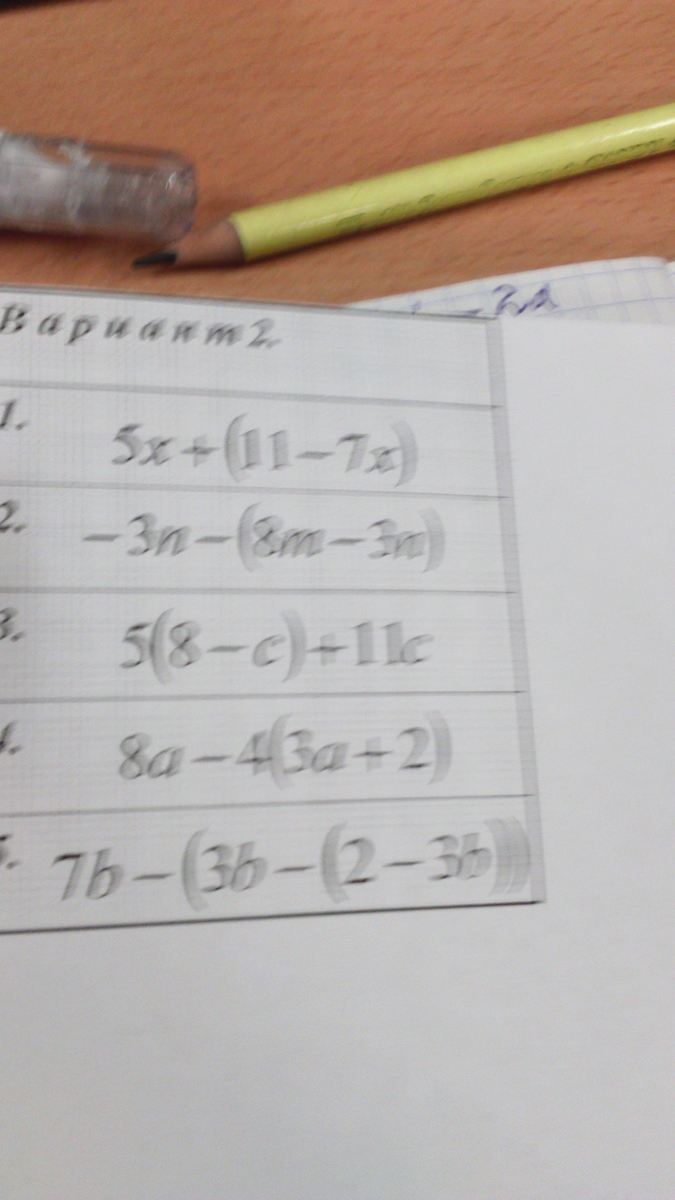 Вариант 2.
1. 5x+(11−7x)
2. −3n−(8m−3n)
3. 5(8−c)+11c
4. 8a−4(3a+2)
5. 7b−(3b−(2−3b))